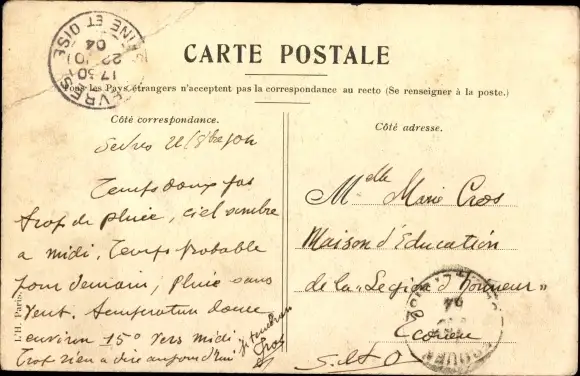 CARTE POSTALE
Tous les Pays étrangers n'acceptent pas la correspondance au recto (Se renseigner à la poste.)
Côté correspondance.
Côté adresse.
SEVRES
SEINE ET OISE
17 30
04
Sevres
Temps doux pas
trop de pluie, ciel sombre
a midi. Temps probable
pour demain, pluie sans
vent. temperature douce
environ 15° vers midi.
Trop rien a dire aujourd'hui.
Cros
Melle Marie Cros
Maison d'Education
de la "Legion d'Honneur"
Ecouen
S. et O
04
L'H. Paris.